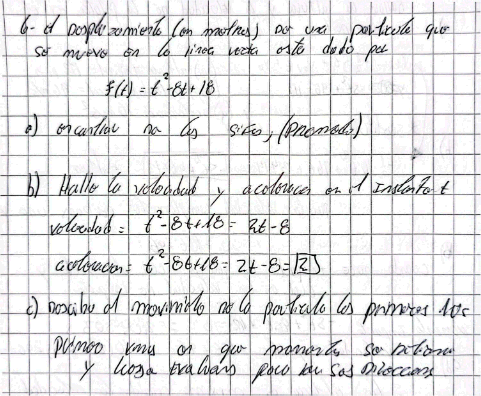 6- el Desplazamiento (en metros) por una particula que
se mueve en la linea recta esta dado por
f(t) = t²-8t+18
a) encontrar los (Promedio)
b) Halle la velocidad y aceleracion en el Instante t
velocidad = t²-8t+18 = 2t-8
aceleracion = t²-8t+18 = 2t-8 = 2
c) Describa el movimiento de la particula los primeros 10s
primero vemos en que momento se detiene
y luego evaluamos para ver sus direcciones